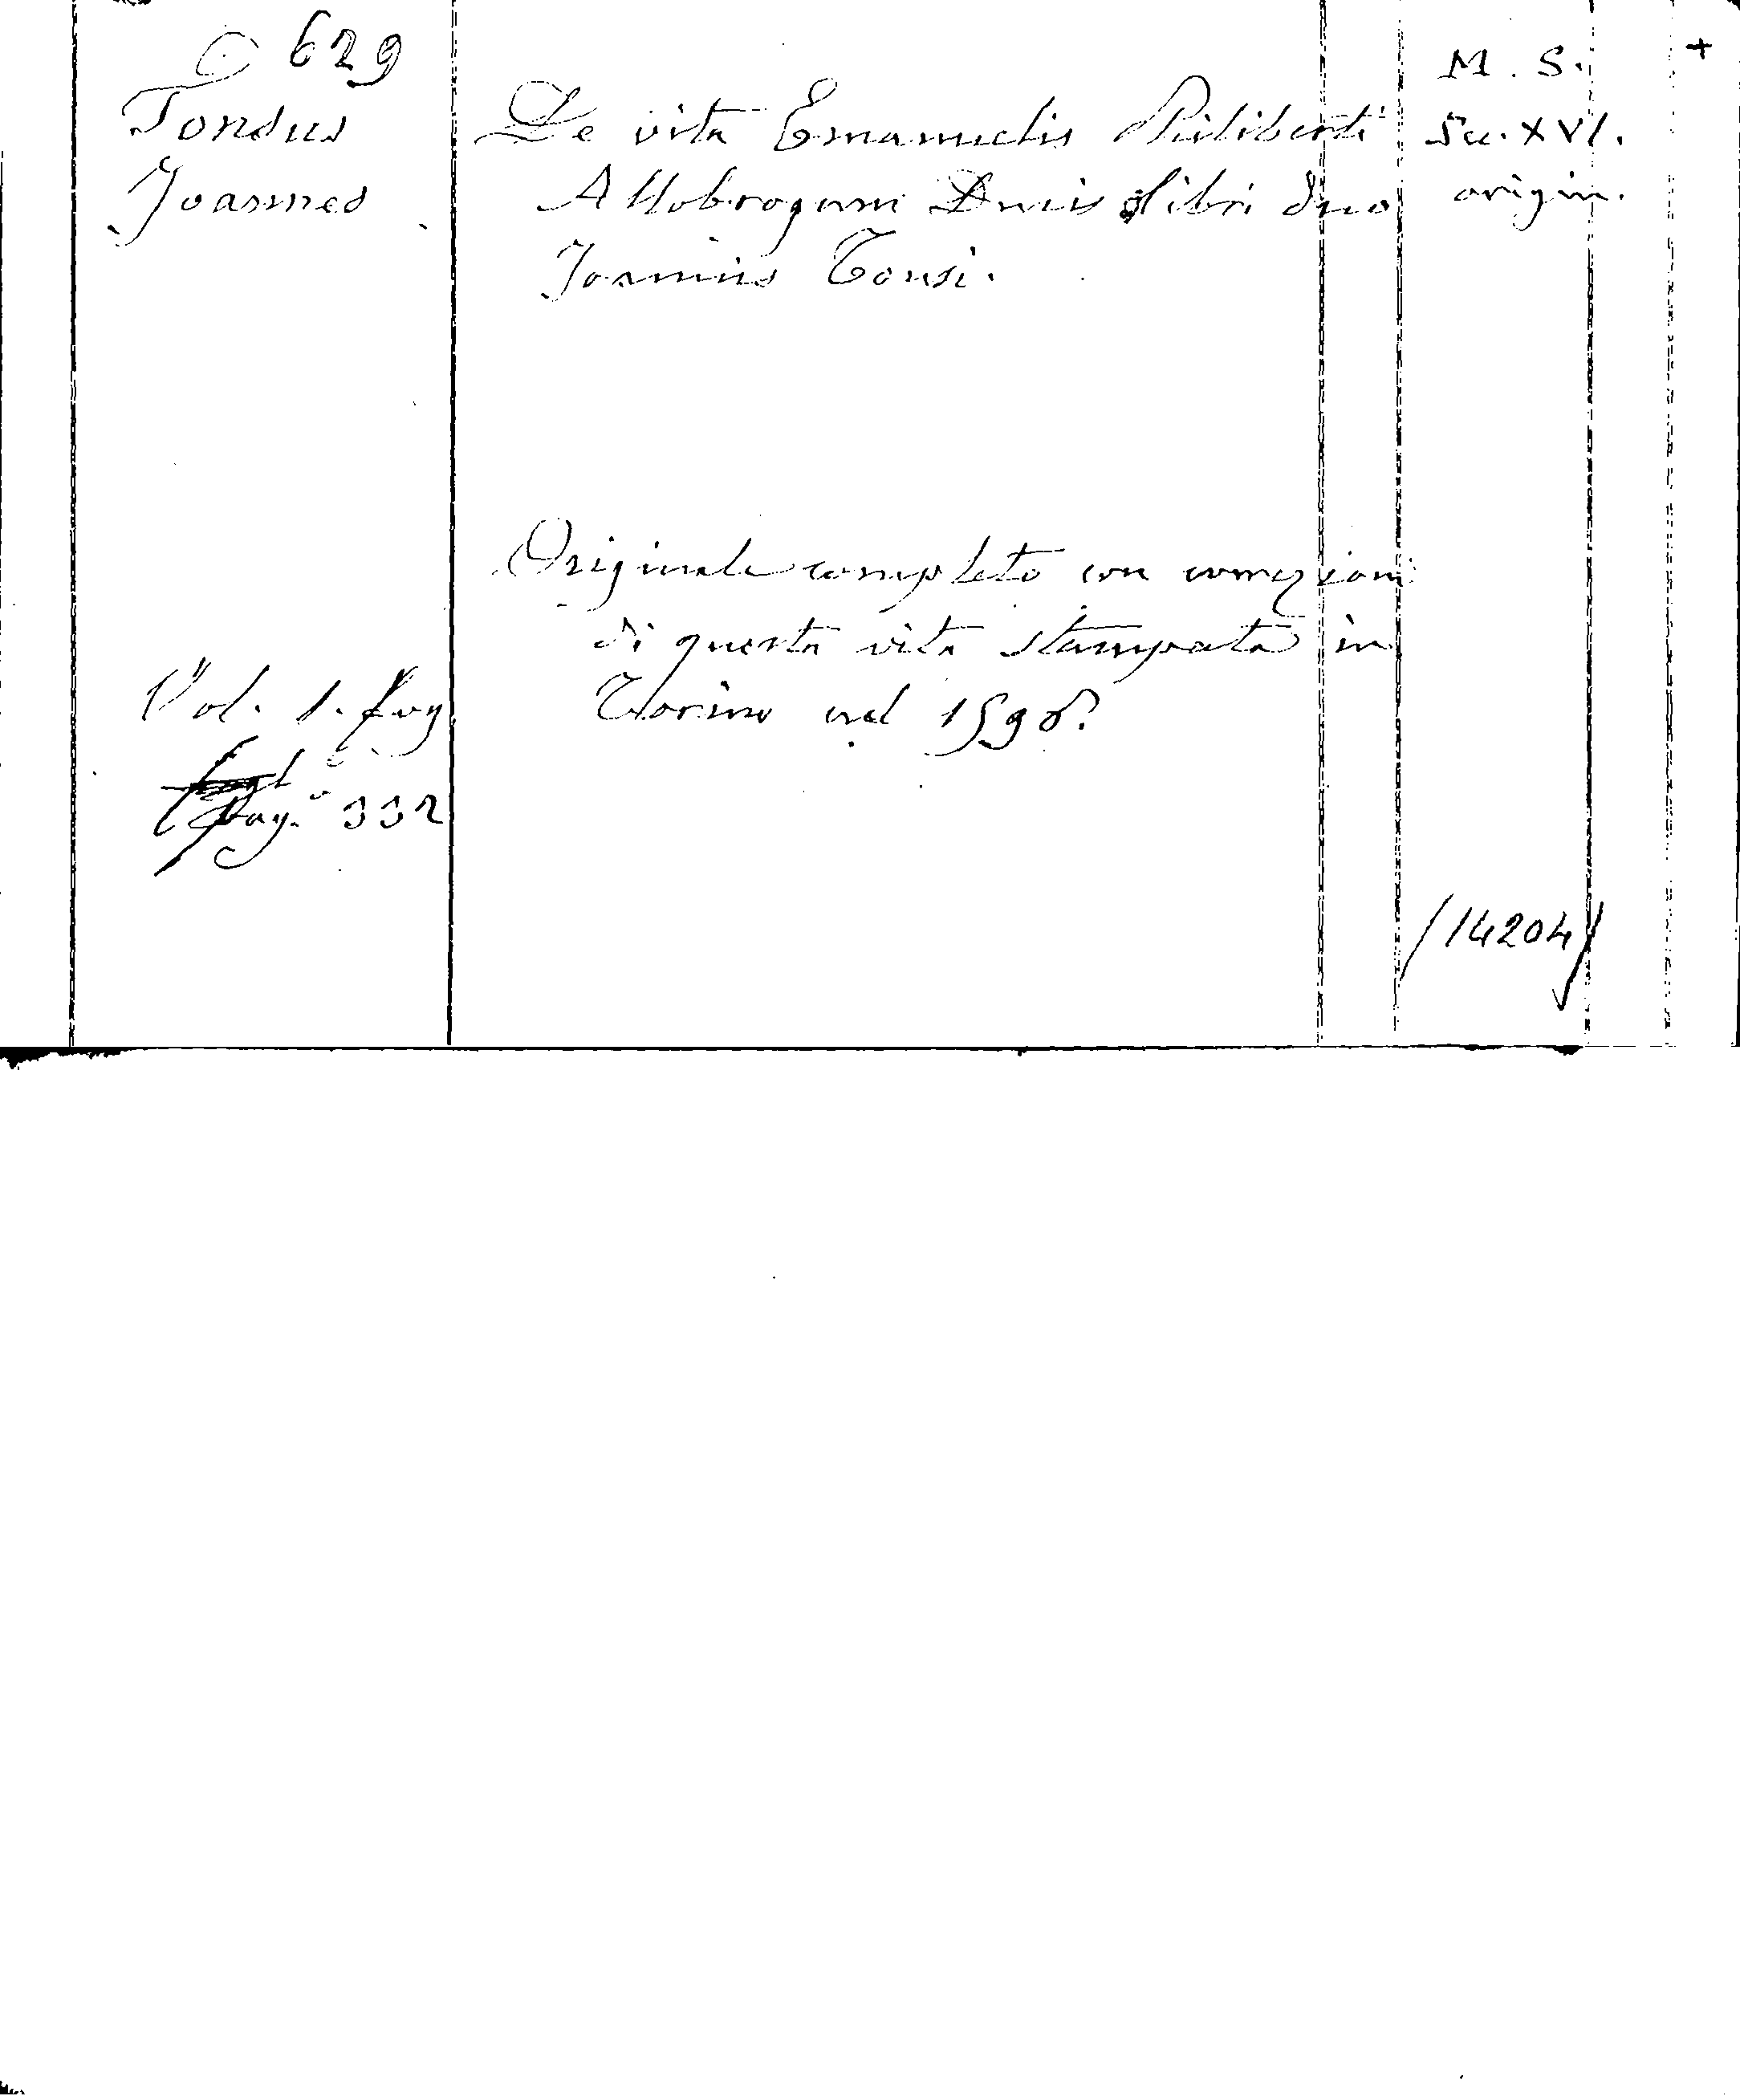 629
Tonsus
Joannes
De vita Emanuelis Philiberti
Allobrogum Ducis libri duo
Joannis Tonsi.
M. S.
Sec. XVI.
origin.
+
Originale completo con correzioni
di questa vita stampata in
Torino nel 1596.
Vol. 1. leg
pag. 332
(14204)